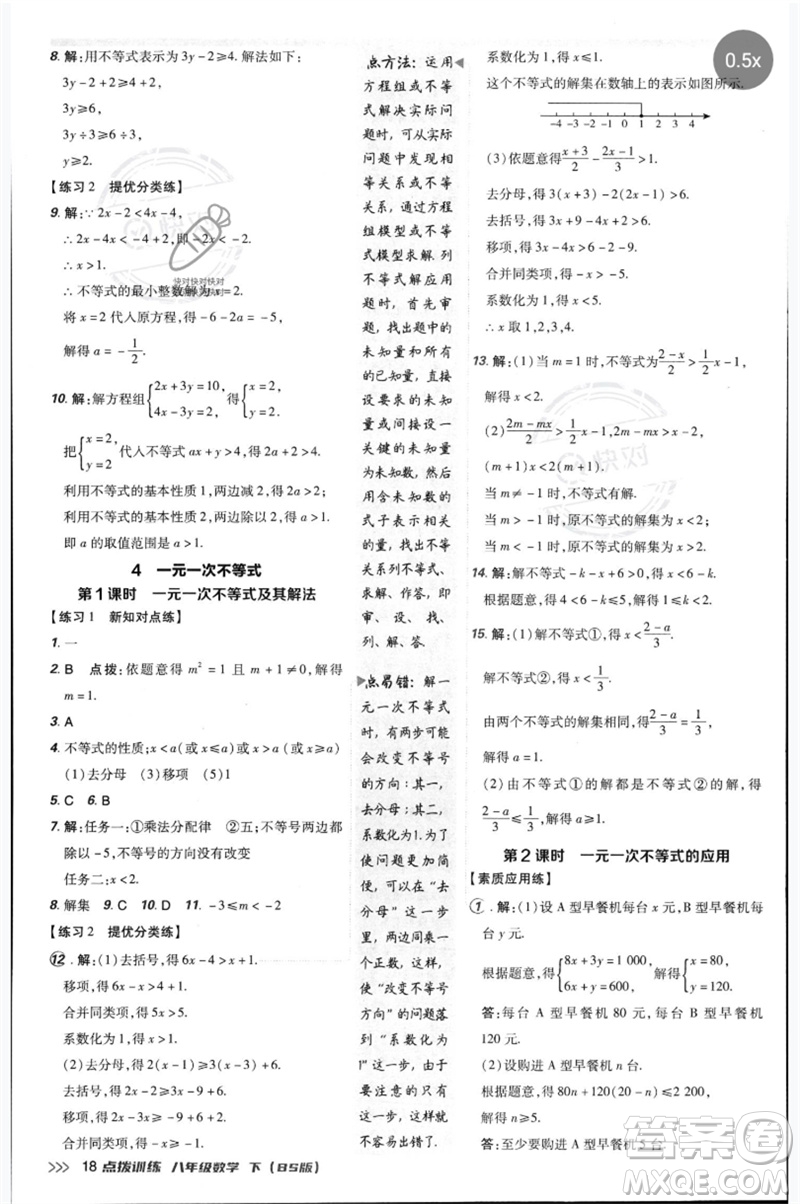 8. 解:用不等式表示为 3y-2≥4. 解法如下:
3y-2+2≥4+2,
3y≥6,
3y÷3≥6÷3,
y≥2.
【练习2 提优分类练】
9. 解:∵2x-2<4x-4,
∴2x-4x<-4+2,即-2x<-2.
∴x>1.
∴不等式的最小整数解为x=2.
将x=2代入原方程,得6-6-2a=1,
解得a=-1/2.
10. 解:解方程组{2x+3y=10, 4x-3y=2,得{x=2, y=2.
把{x=2, y=2代入不等式ax+y>4,得2a+2>4.
利用不等式的基本性质1,两边减2,得2a>2.
利用不等式的基本性质2,两边除以2,得a>1.
即a的取值范围是a>1.
4 一元一次不等式
第1课时 一元一次不等式及其解法
【练习1 新知对点练】
1. 一
2. B 点拨:依题意得m²=1且m+1≠0,解得
m=1.
3. A
4. 不等式的性质;x<a(或x≤a)或x>a(或x≥a)
(1)去分母 (3)移项 (5)系数化为1
5. C 6. B
7. 解:任务一:①乘法分配律 ②五;不等号两边都
除以-5,不等号的方向没有改变
任务二:x<2.
8. 解集 9. C 10. D 11. -3≤m<-2
【练习2 提优分类练】
12. 解:(1)去括号,得6x-4>x+1.
移项,得6x-x>4+1.
合并同类项,得5x>5.
系数化为1,得x>1.
(2)去分母,得2(2x-1)≥3(3x+2)-6.
去括号,得4x-2≥9x+6-6.
移项,得4x-9x≥6-6+2.
合并同类项,得-5x≥2.
点方法:运用
方程组或不等
式解决实际问
题时,可以从
问题中发现相
等关系或不等
关系,通过方程
组模型或不等
式模型求解.列
不等式解应用
题时,首先审
题,找出题中的
未知量和所有
的已知量,直接
设要求的未知
量或间接设一
关键的未知数,然后
用含未知数的
式子表示相关
的量,最后找出
不等关系列不
等式、求解、作
答,即审、设、找、
列、解、答.
点易错:解一
元一次不等式
时,有两步可能
会改变不等号
的方向:其一,
去分母;其二,
系数化为1.为了
使问题更加简
单,可以在“去
分母”这一步,
两边同乘一个
正数,这样,
使“改变不等号
方向”的问题落
到“系数化为
1”这一步,由于
要注意的只有
一步,这样就
不容易出错了.
系数化为1,得x≤1.
这个不等式的解集在数轴上的表示如图所示.
-4 -3 -2 -1 0 1 2 3 4
(3)依题意得(x+3)/2-(x-1)/3>1.
去分母,得3(x+3)-2(x-1)>6.
去括号,得3x+9-2x+2>6.
移项,得3x-2x>6-2-9.
合并同类项,得x>-5.
13. 解:(1)当m=1时,不等式为(2-x)/2>1/2x-1,
解得x<2.
(2)(2m-mx)/2>1/2x-1,2m-mx>x-2,
(m+1)x<2(m+1).
当m≠-1时,不等式有解.
当m>-1时,原不等式的解集为x<2;
当m<-1时,原不等式的解集为x>2.
15. 解:(1)解不等式①,得x<(2-a)/3.
解不等式②,得x<1/3.
由两个不等式的解集相同,得(2-a)/3=1/3,
解得a=1.
(2)由不等式①的解都是不等式②的解,
得(2-a)/3≤1/3,解得a≥1.
第2课时 一元一次不等式的应用
【素质应用练】
1. 解:(1)设A型早餐机每台x元,B型早餐机每
台y元.
根据题意,得{8x+3y=1 000, 6x+y=600,解得{x=80, y=120.
答:每台A型早餐机80元,每台B型早餐机
120元.
(2)设购进A型早餐机n台.
根据题意,得80n+120(20-n)≤2 200,解得
n≥5.
答:至少要购买A型早餐机5台.
18 点拨训练 八年级数学 下(BS版)
0.5x
快对
答案圈